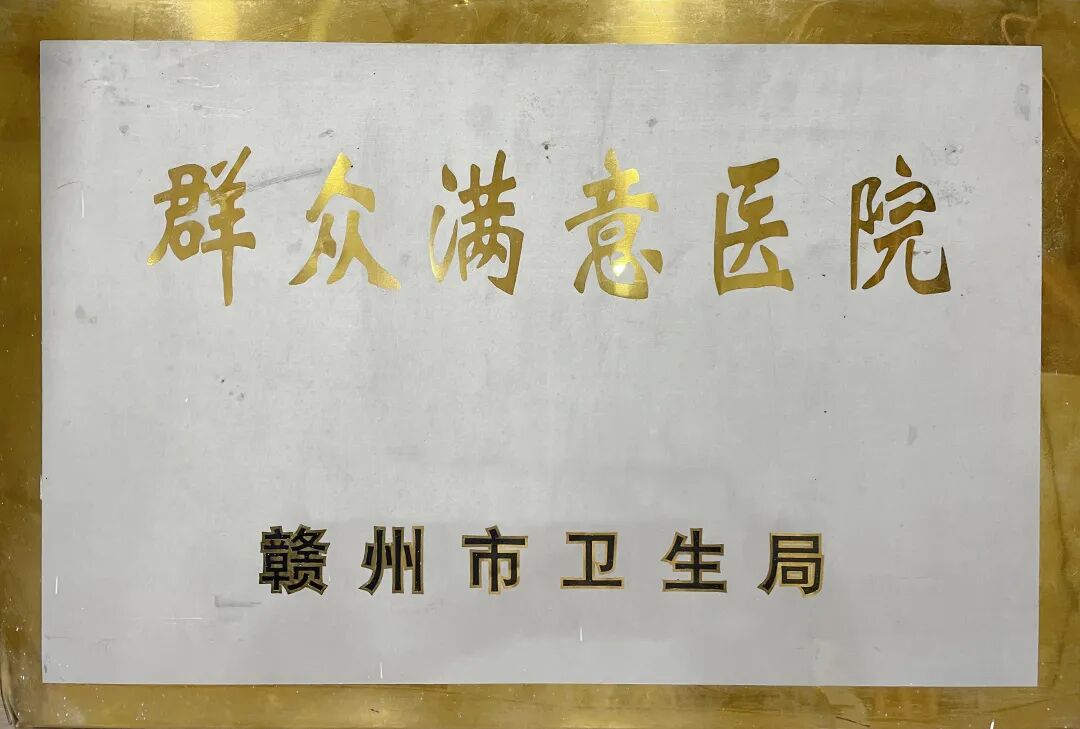 群众满意医院
赣州市卫生局